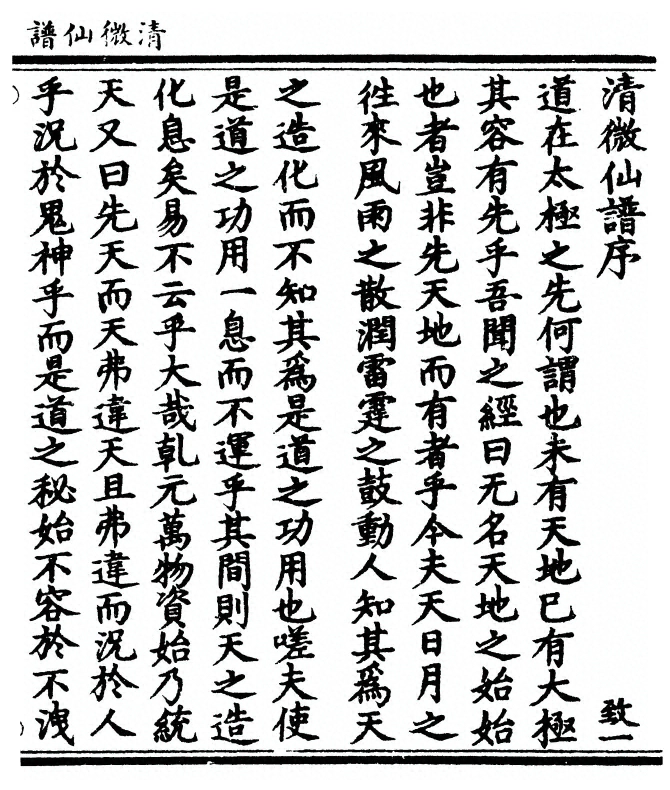 清微仙譜
清微仙譜序
致一
道在太極之先何謂也未有天地已有太極
其容有先乎吾聞之經曰无名天地之始始
也者豈非先天地而有者乎今夫天日月之
徃來風雨之散潤雷霆之鼓動人知其爲天
之造化而不知其爲是道之功用也嗟夫使
是道之功用一息而不運乎其間則天之造
化息矣易不云乎大哉乹元萬物資始乃統
天又曰先天而天弗違天且弗違而況於人
乎況於鬼神乎而是道之秘始不容於不洩